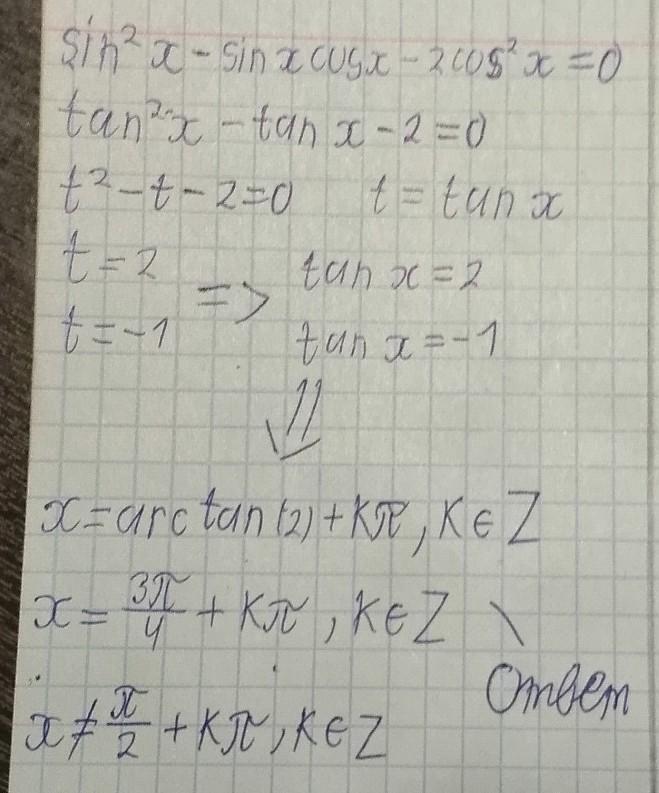 sin²x - sin x cos x - 2cos²x = 0
tan²x - tan x - 2 = 0
t² - t - 2 = 0 t = tan x
t = 2 tan x = 2
=>
t = -1 tan x = -1
⇓
x = arctan(2) + kπ, k ∈ Z
x = 3π/4 + kπ, k ∈ Z \
Ответ
x ≠ π/2 + kπ, k ∈ Z